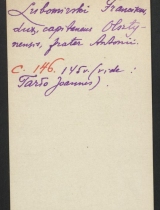 Lubomirski Franciscus
dux, capitaneus Olszty-
nensis, frater Antonii.
c. 146. 145v (vide:
Tarło Joannes)